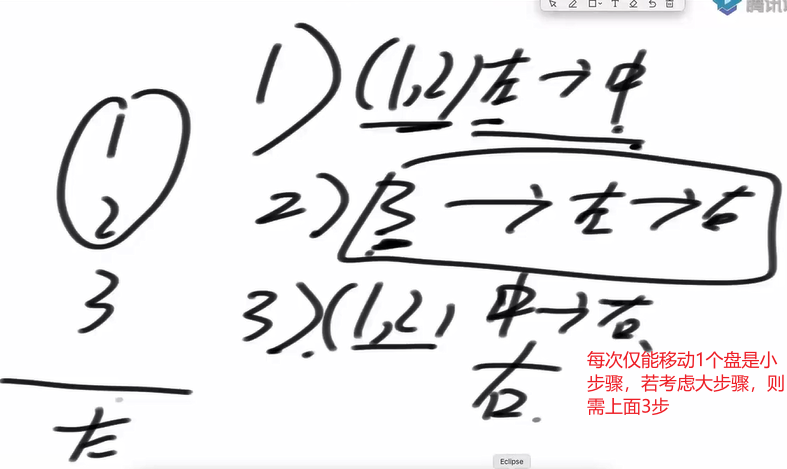 腾讯
1) (1,2) 左→中
1
2
2) 3 → 左→右
3
3) (1,2, 中→右
右
左
每次仅能移动1个盘是小
步骤，若考虑大步骤，则
需上面3步
Eclipse